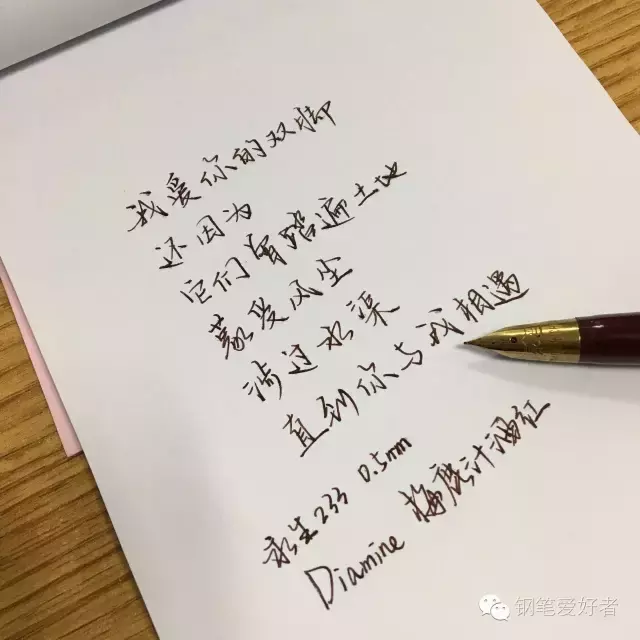 我爱你的双脚
还因为
它们曾踏遍土地
蒙受风尘
涉过水渠
直到你与我相遇
永生233 0.5mm
Diamine 梅鹿汁酒红
钢笔爱好者